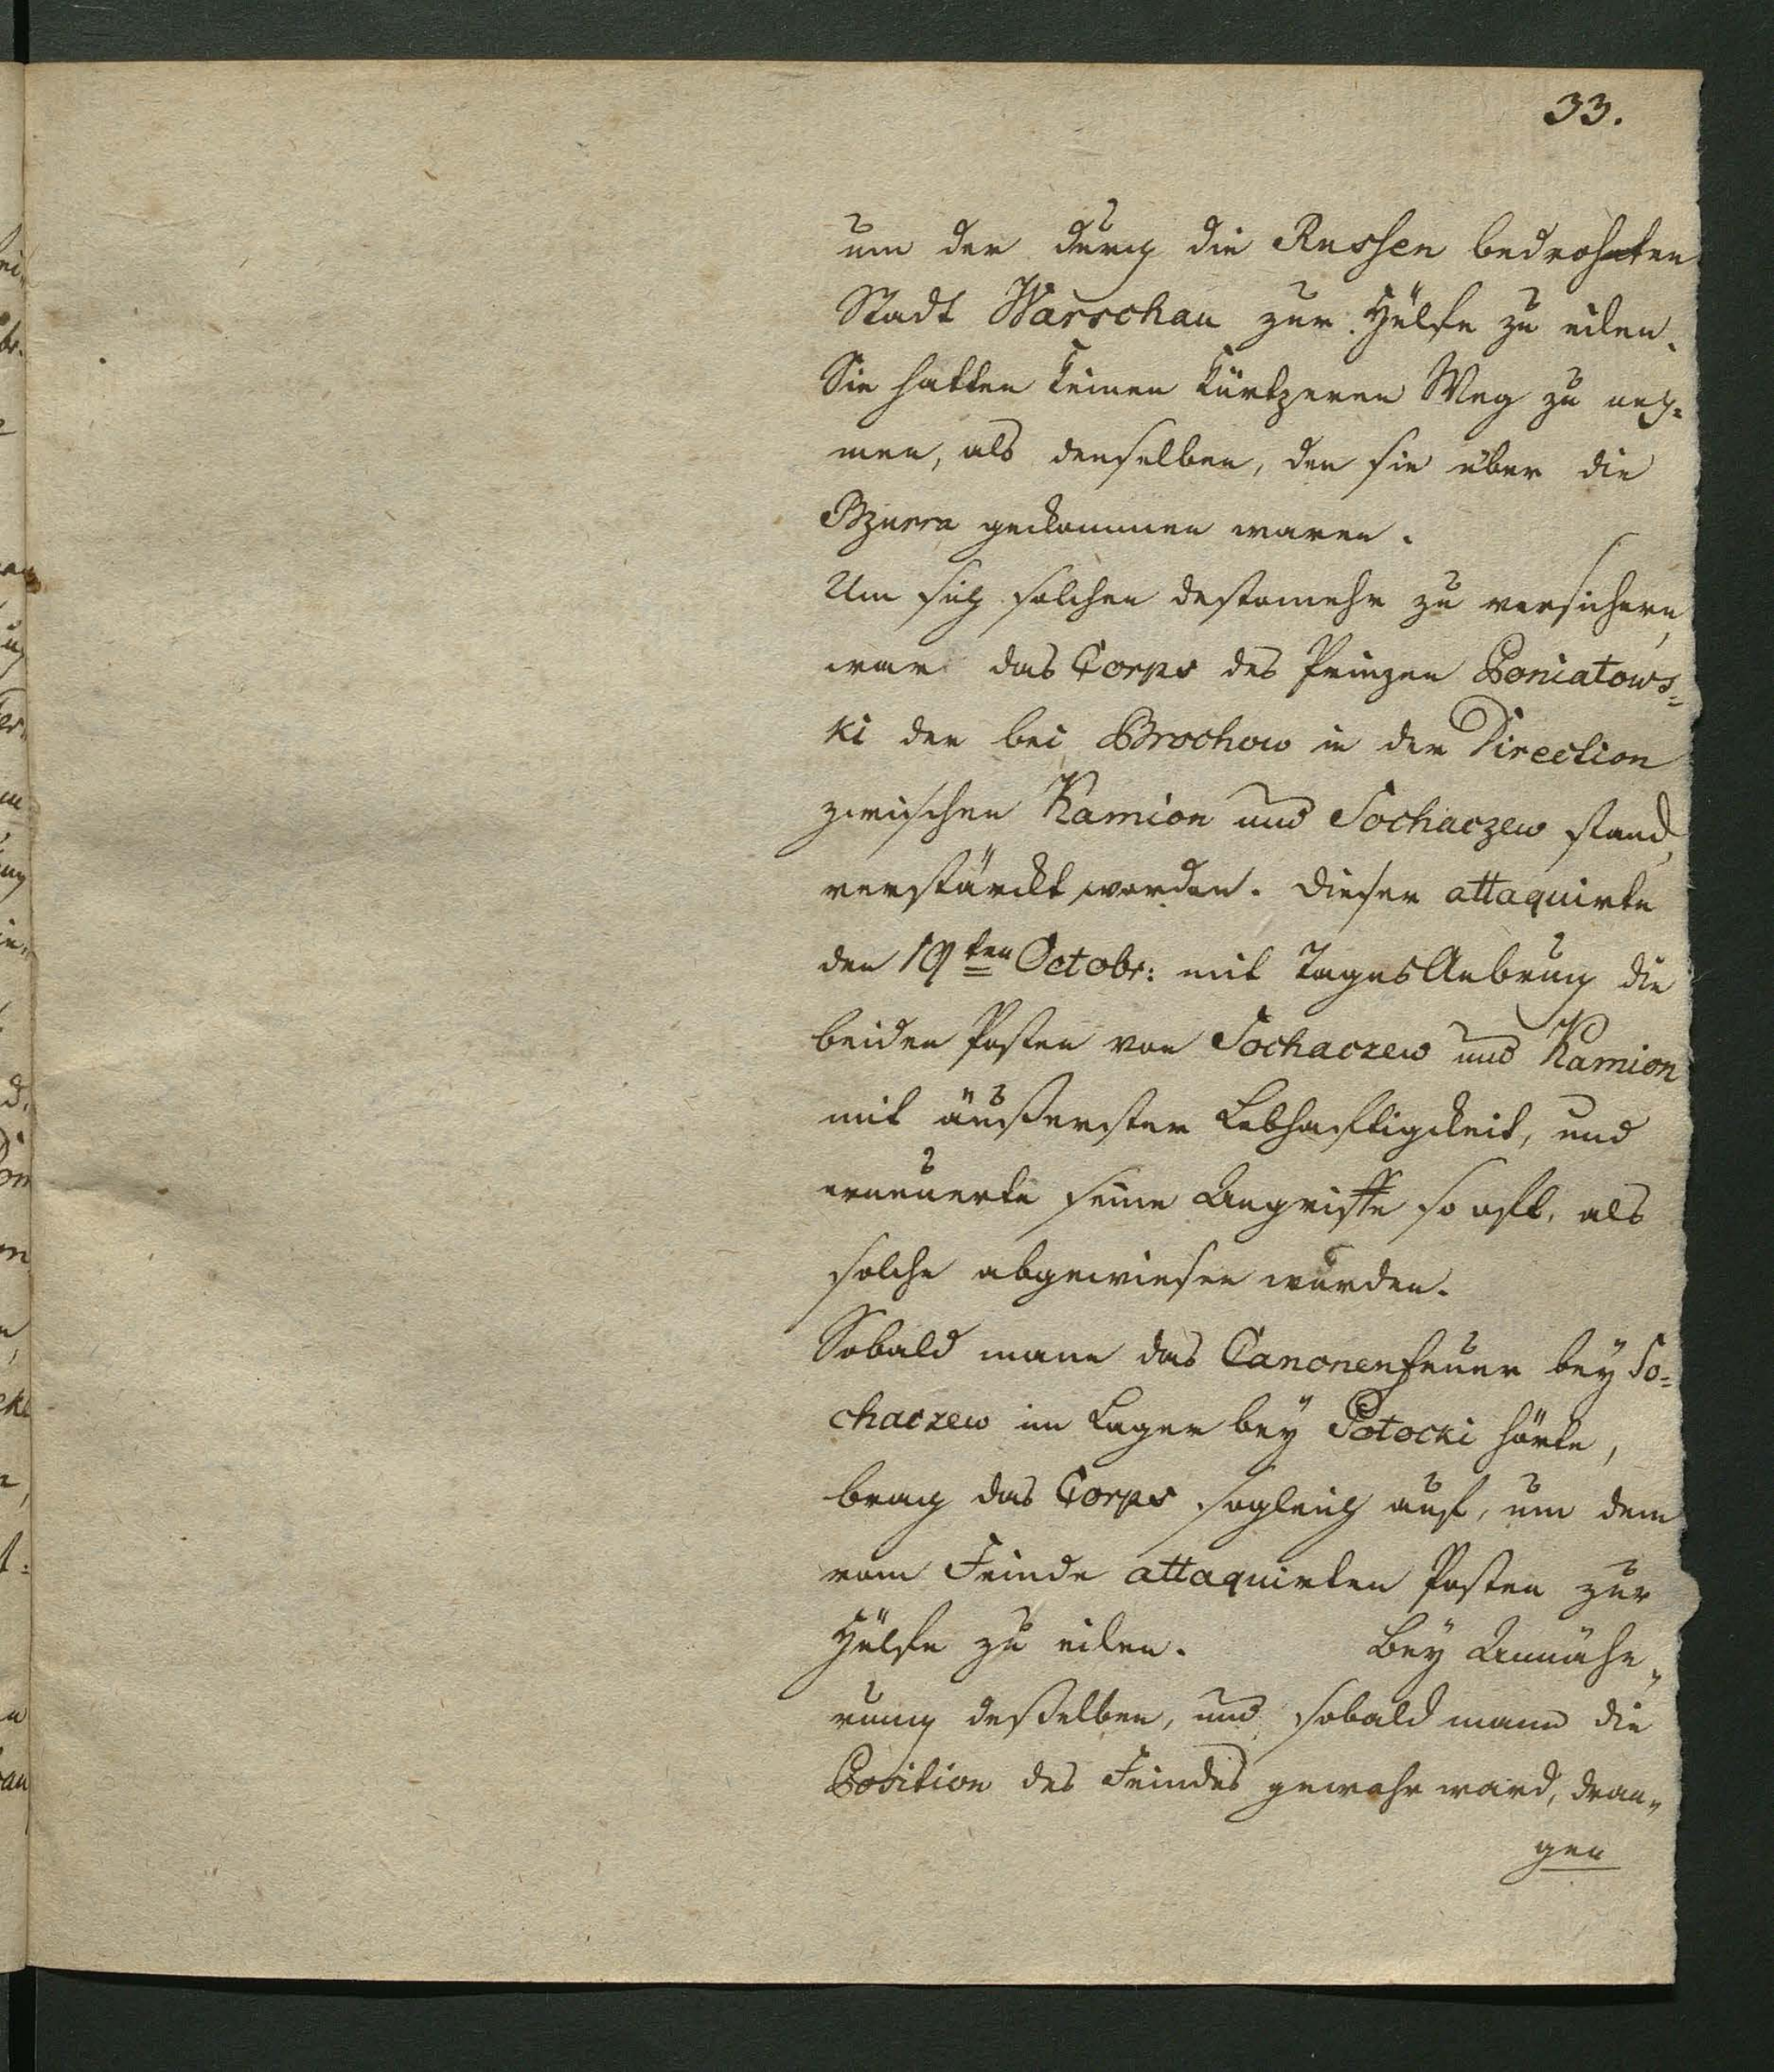 33.
um der durch die Russen bedrohten
Stadt Warschau zur Hülfe zu eilen.
Sie hatten keinen kürtzeren Weg zu neh=
men, als denselben, den sie über die
Bzurra gekommen waren.
Um sich solchen destomehr zu versichern,
war das Corps des Prinzen Poniatows=
ki der bei Brochow in der Direction
zwischen Kamion und Sochaczew stand,
verstärckt worden. Dieser attaquirte
den 19ten Octobr: mit Tages Anbruch die
beiden Posten von Sochaczew und Kamion
mit äußerster Lebhaftigkeit, und
erneuerte seine Angriffe so oft, als
solche abgewiesen wurden.
Sobald mann das Canonenfeuer bey So=
chaczew im Lager bey Potocki hörte,
brach das Corps sogleich auf, um dem
vom Feinde attaquirten Posten zur
Hülfe zu eilen. Bey Annähe„
rung deßelben, und sobald mann die
Position des Feindes gewahr ward, dran„
gen